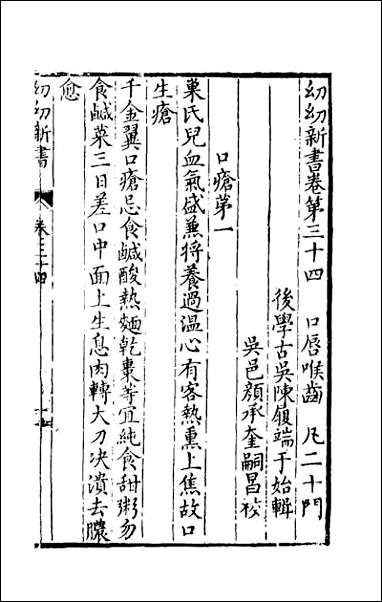 幼幼新書卷第三十四　口唇喉齒　凡二十門
後學古吳陳履端于始輯
吳邑顏承奎嗣昌校
口瘡第一
巢氏兒血氣盛兼將養過溫心有客熱熏上焦故口
生瘡
千金翼口瘡忌食鹹酸熱麵乾棗等宜純食甜粥勿
食鹹菜三日差口中面上生息肉轉大刀決潰去膿
愈
幼幼新書　卷三十四　一